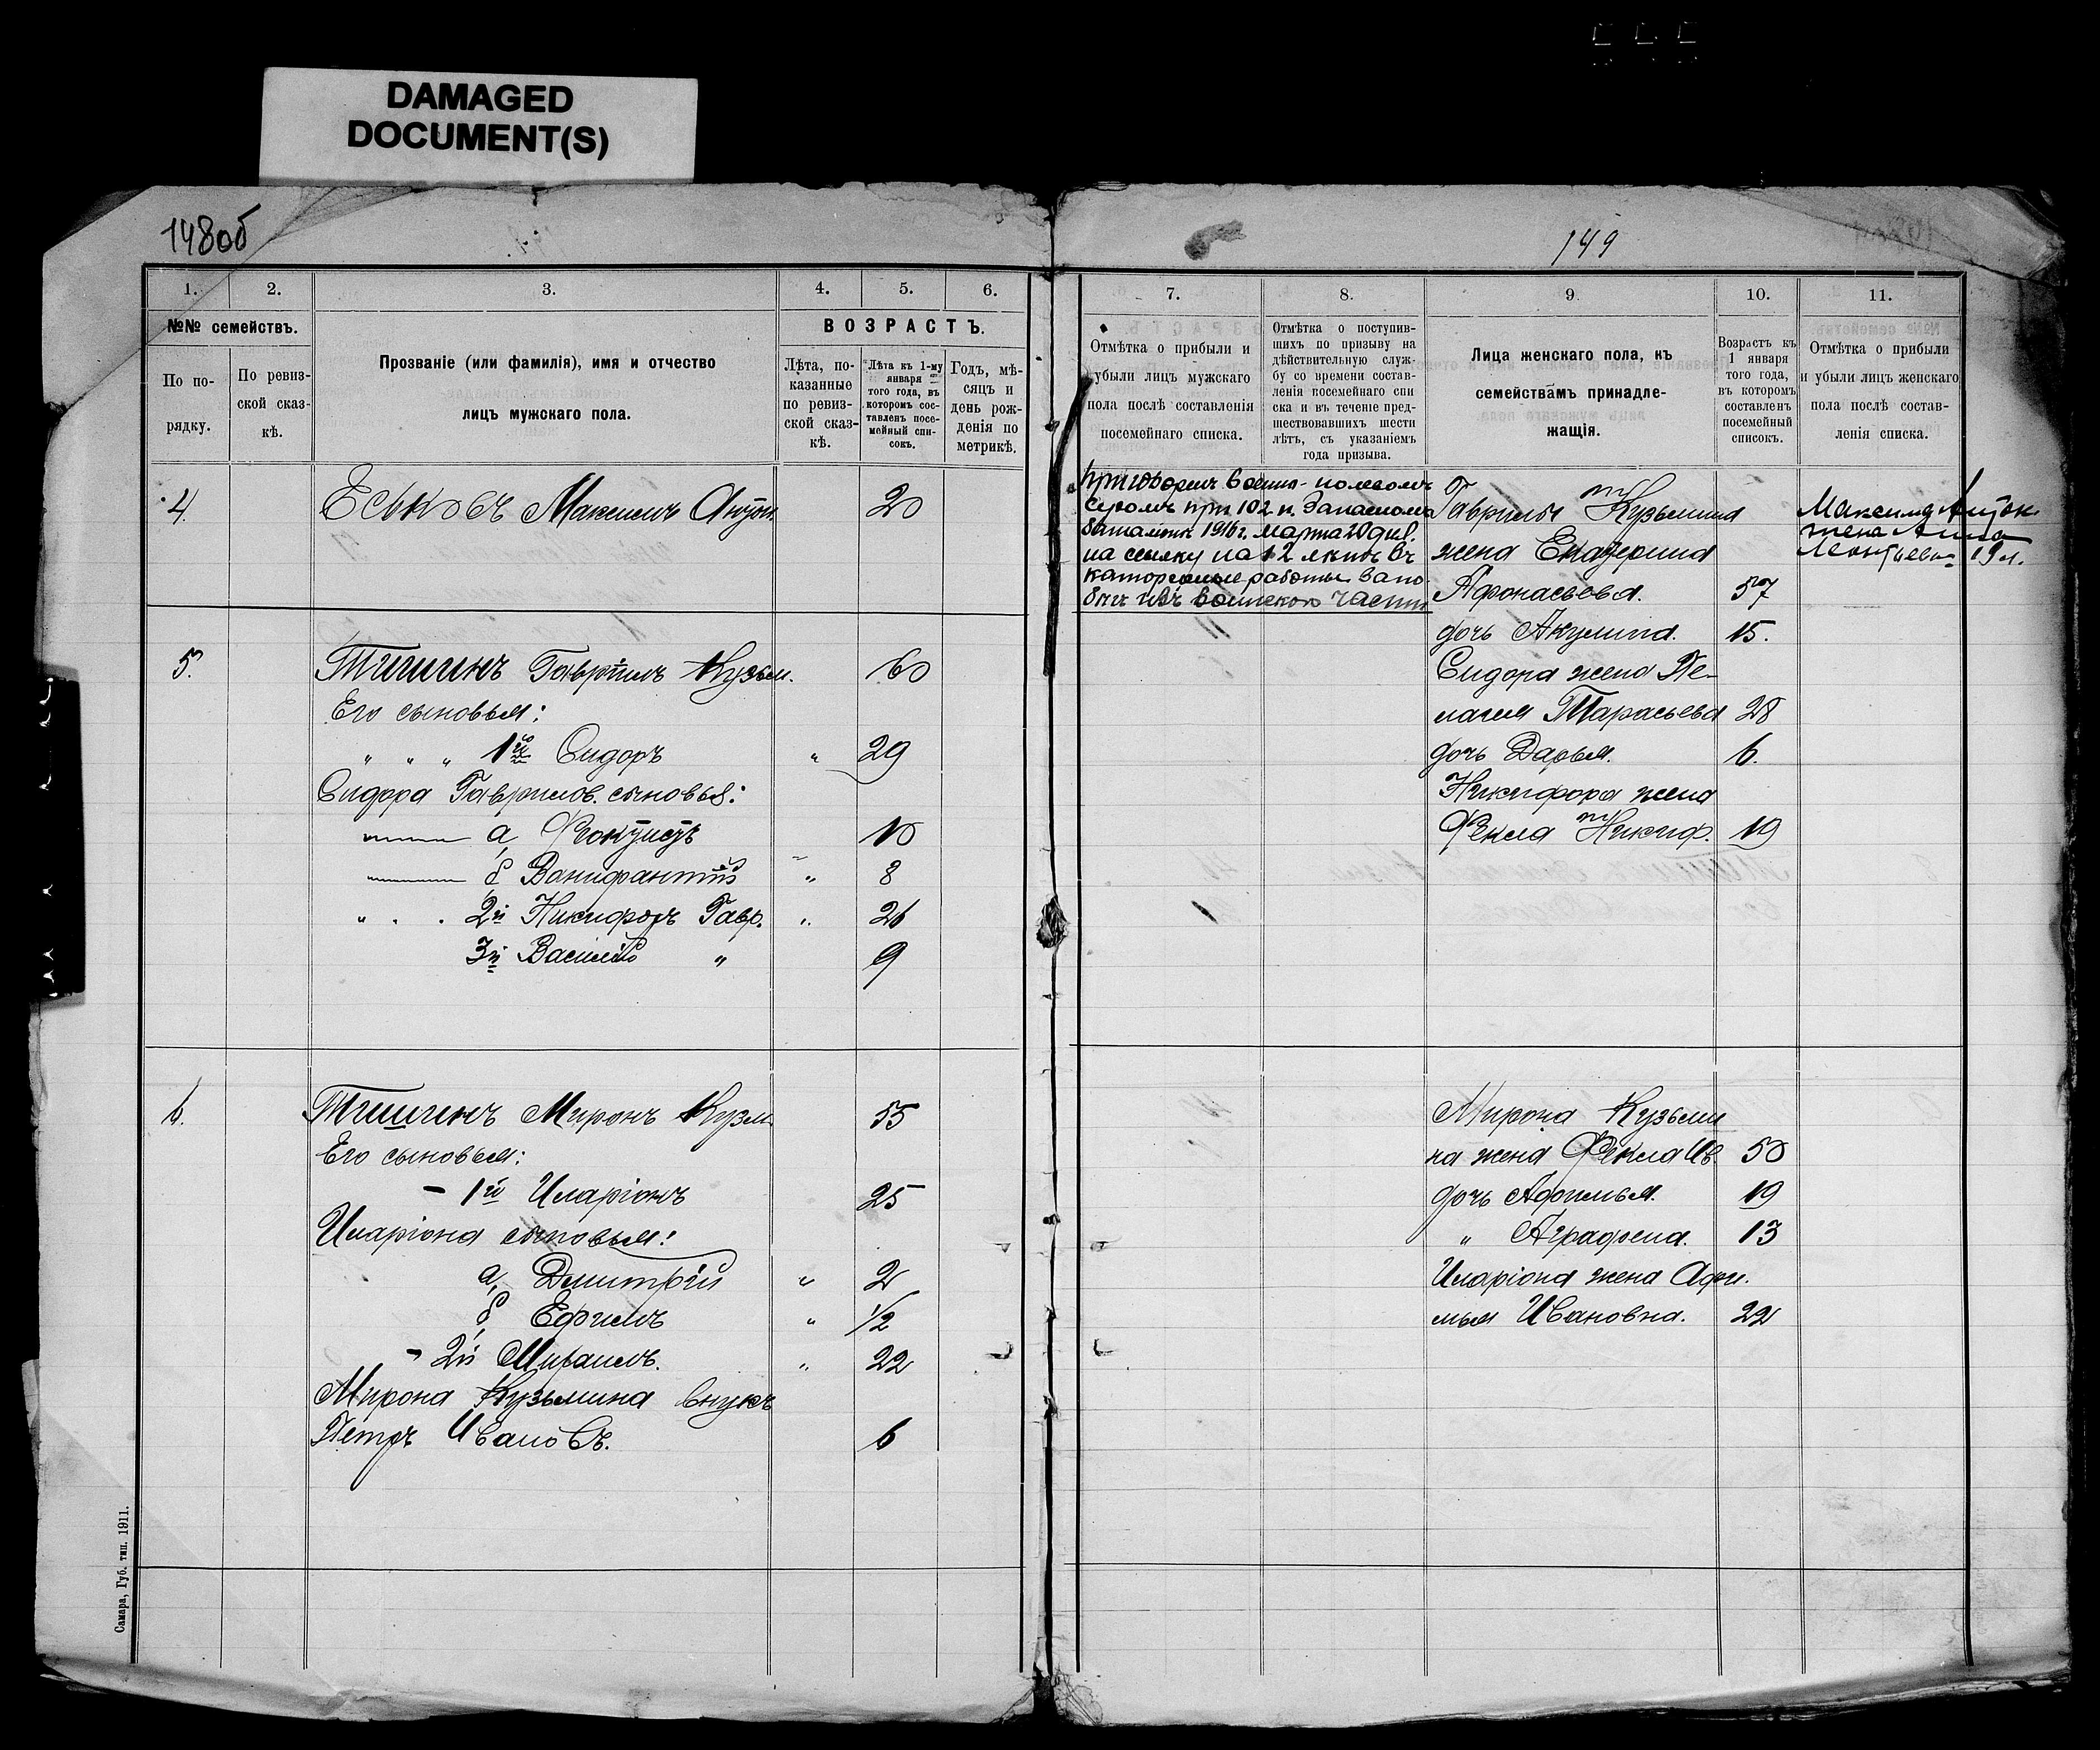 DAMAGED
DOCUMENT(S)
148об
1.
2.
3.
4.
5.
6.
№№ семействъ.
По по-
рядку.
По ревиз-
ской сказ-
кѣ.
Прозваніе (или фамилія), имя и отчество
лицъ мужскаго пола.
ВОЗРАСТЪ.
Лѣта, по-
казанные
по ревиз-
ской сказ-
кѣ.
Лѣта къ 1-му
января
того года, въ
которомъ сос-
тавленъ посе-
мейный спи-
сокъ.
Годъ, мѣ-
сяцъ и
день рож-
денія по
метрикѣ.
4. Еськовъ Максимъ Антон. 20
5. Тишинъ Гаврiилъ Кузьм. 60
Его сыновья:
„ „ „ 1й Сидоръ „ 29
Сидора Гаврилов. сыновья:
а, Феоктистъ 10
б Вонифантiй „ 8
„ . . 2й Никифоръ Гавр. „ 26
3й Василiй „ 9
6. Тишинъ Миронъ Кузьм. 55
Его сыновья:
- 1й Иларiонъ 25
Иларiона сыновья:
а, Дмитрiй „ 2
б, Ефимъ „ 1/2
- 2й Михаилъ. „ 22
Мирона Кузьмина внукъ
Петръ Ивановъ. 6
Самара, Губ. тип. 1911.
149
7.
8.
9.
10.
11.
Отмѣтка о прибыли и
убыли лицъ мужскаго
пола послѣ составленія
посемейнаго списка.
Отмѣтка о поступив-
шихъ по призыву на
дѣйствительную служ-
бу со времени состав-
ленія посемейнаго спи
ска и въ теченіе пред-
шествовавшихъ шести
лѣтъ, съ указаніемъ
года призыва.
Лица женскаго пола, къ
семействамъ принадле-
жащія.
Возрастъ къ
1 января
того года,
въ которомъ
составленъ
посемейный
списокъ.
Отмѣтка о прибыли
и убыли лицъ женскаго
пола послѣ состав-
ленія списка.
Приговоромъ военно-полевомъ
судомъ при 102 п. Запасномъ
баталіонѣ 1916 г. марта 20 дня
на ссылку на 12 лѣтъ въ
каторжные работы за по
бѣгъ изъ воинской части
Гаврилы Кузьмина
жена Екатерина
Афонасьева. 57
дочь Акулина. 15.
Сидора жена Пе-
лагея Тарасьева 28
дочь Дарья. 6.
Никифора жена
Фекла Никиф. 19
Максима Антон.
жена Анна
Леонтьева 19 л.
Мирона Кузьми
на жена Фекла Ив. 50
дочь Афимья. 19
„ Аграфена. 13
Иларiона жена Афи-
мья Ивановна. 22